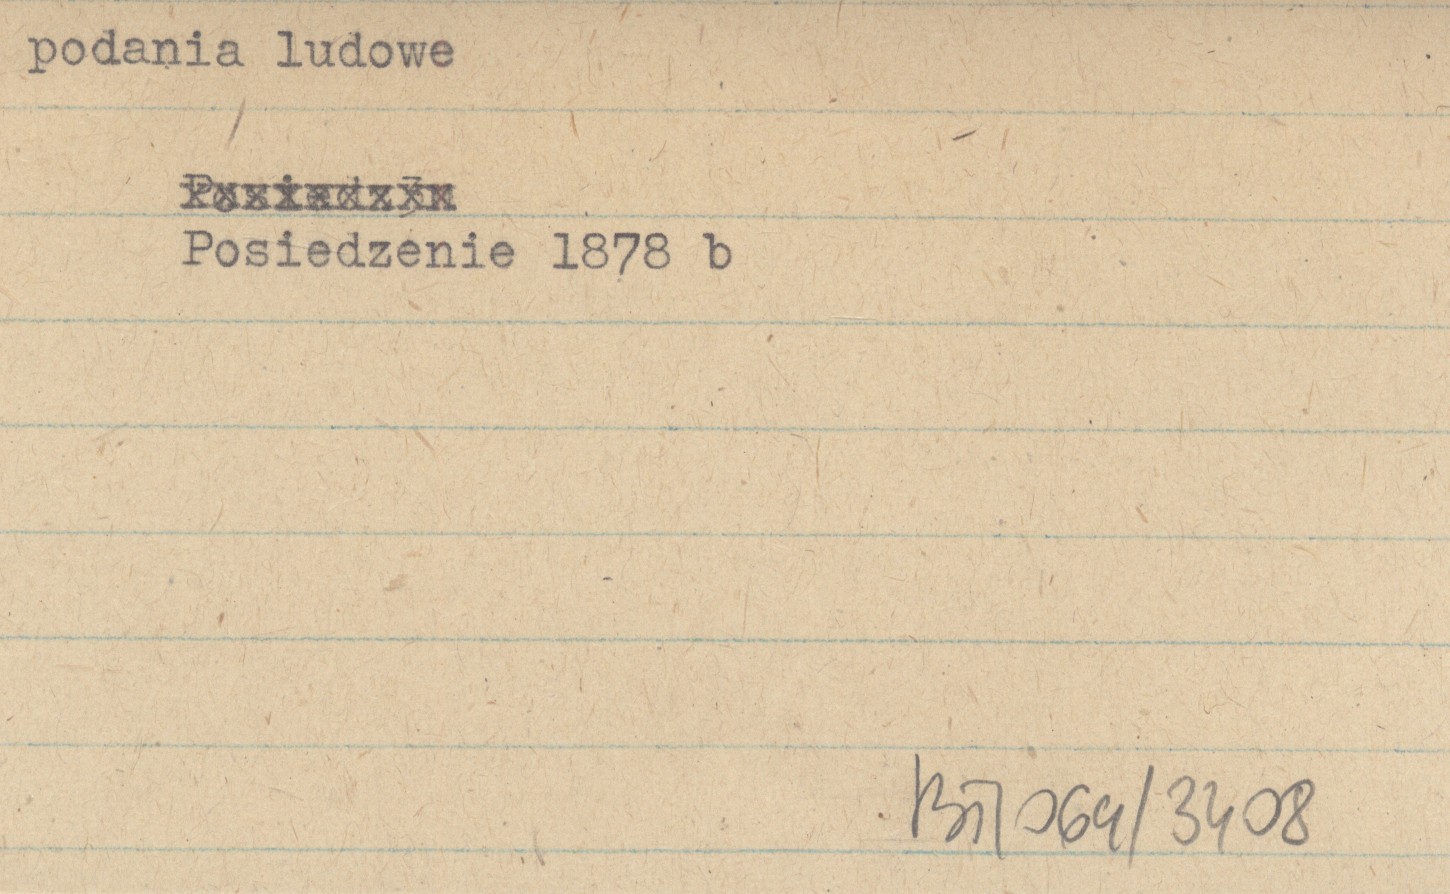 podania ludowe
Posiedzenie 1878 b
064/3408